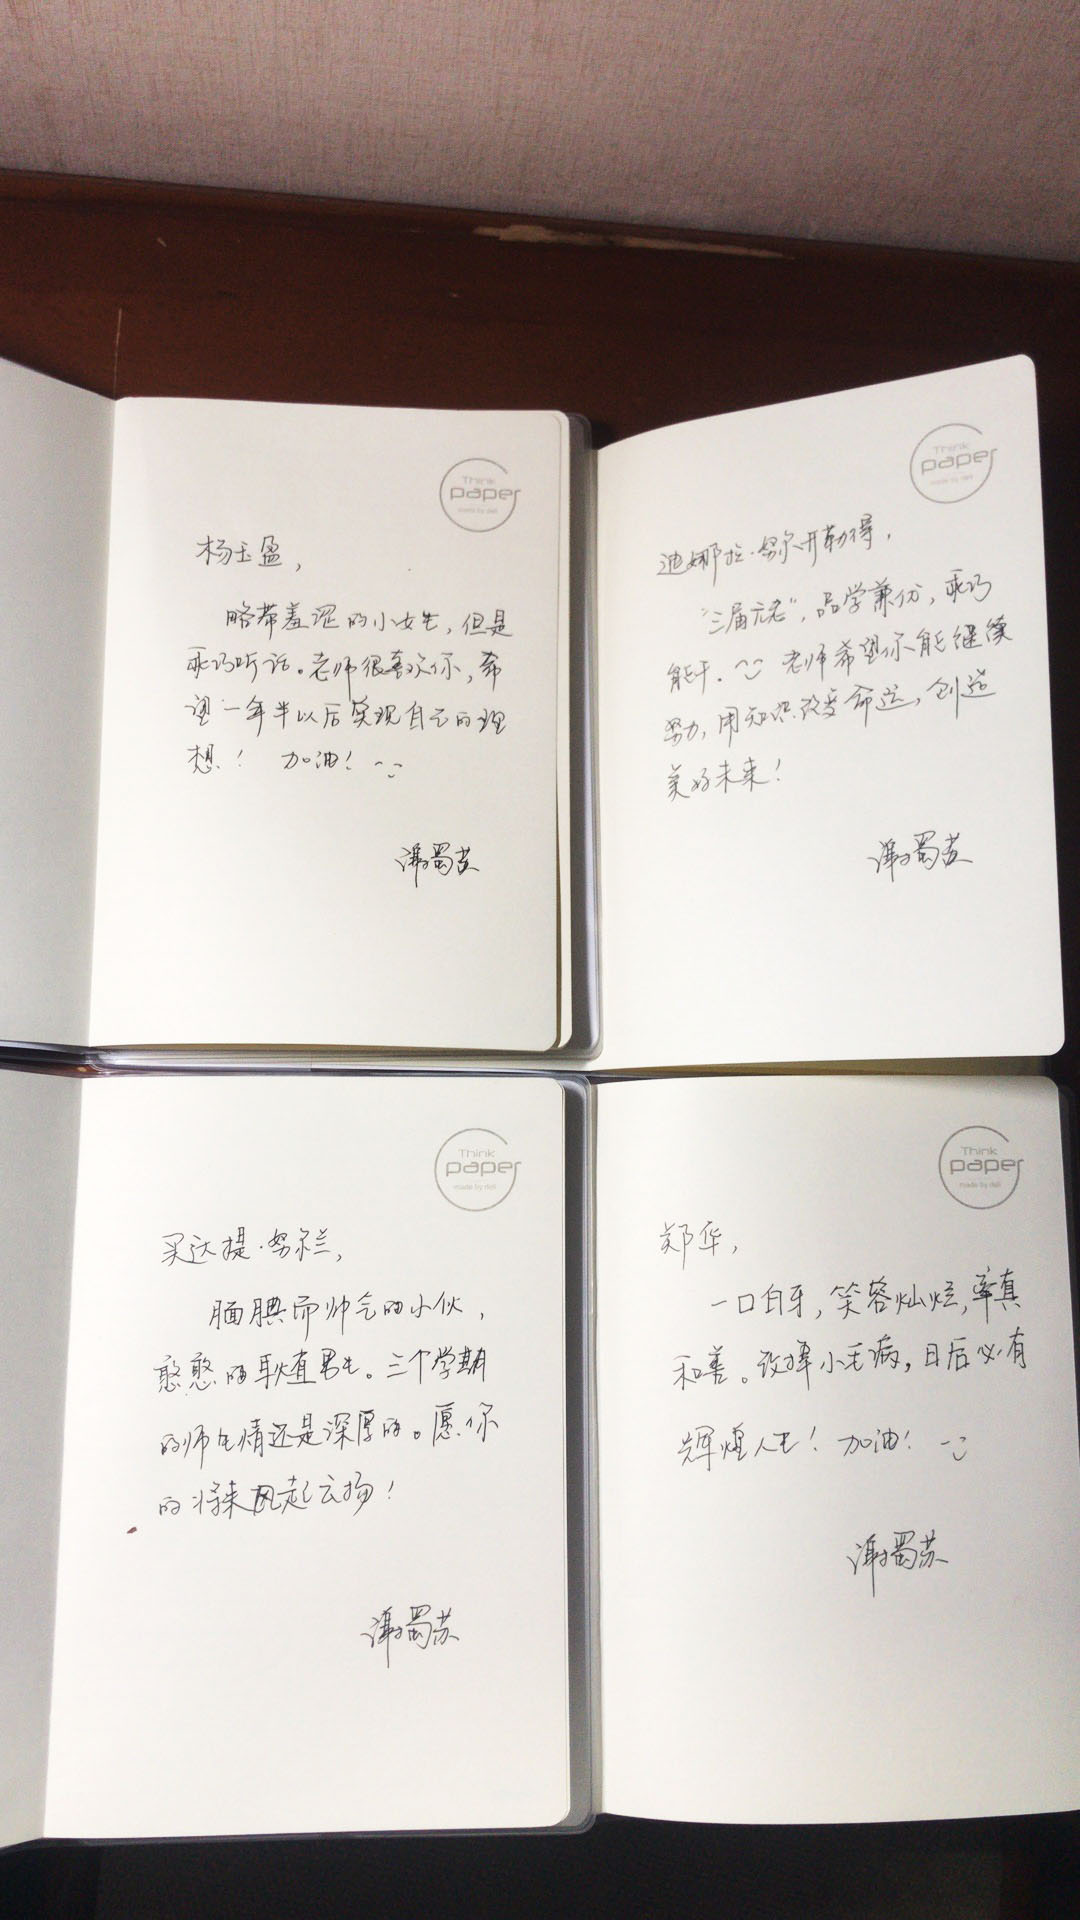 Think
paper
made by deli
杨玉盈，
略带羞涩的小女生，但是
乖巧听话。老师很喜欢你，希
望一年半以后实现自己的理
想！ 加油！
谢蜀苏
Think
paper
made by deli
迪娜拉·努尔开勒得，
“三届元老”，品学兼优，乖巧
能干. 老师希望你能继续
努力，用知识改变命运，创造
美好未来！
谢蜀苏
Think
paper
made by deli
买达提·努尔兰，
腼腆而帅气的小伙，
憨憨的耿直男生。三个学期
的师生情还是深厚的。愿你
的将来风起云扬！
谢蜀苏
Think
paper
made by deli
郑华，
一口白牙，笑容灿烂，率真
和善。改掉小毛病，日后必有
辉煌人生！ 加油！
谢蜀苏